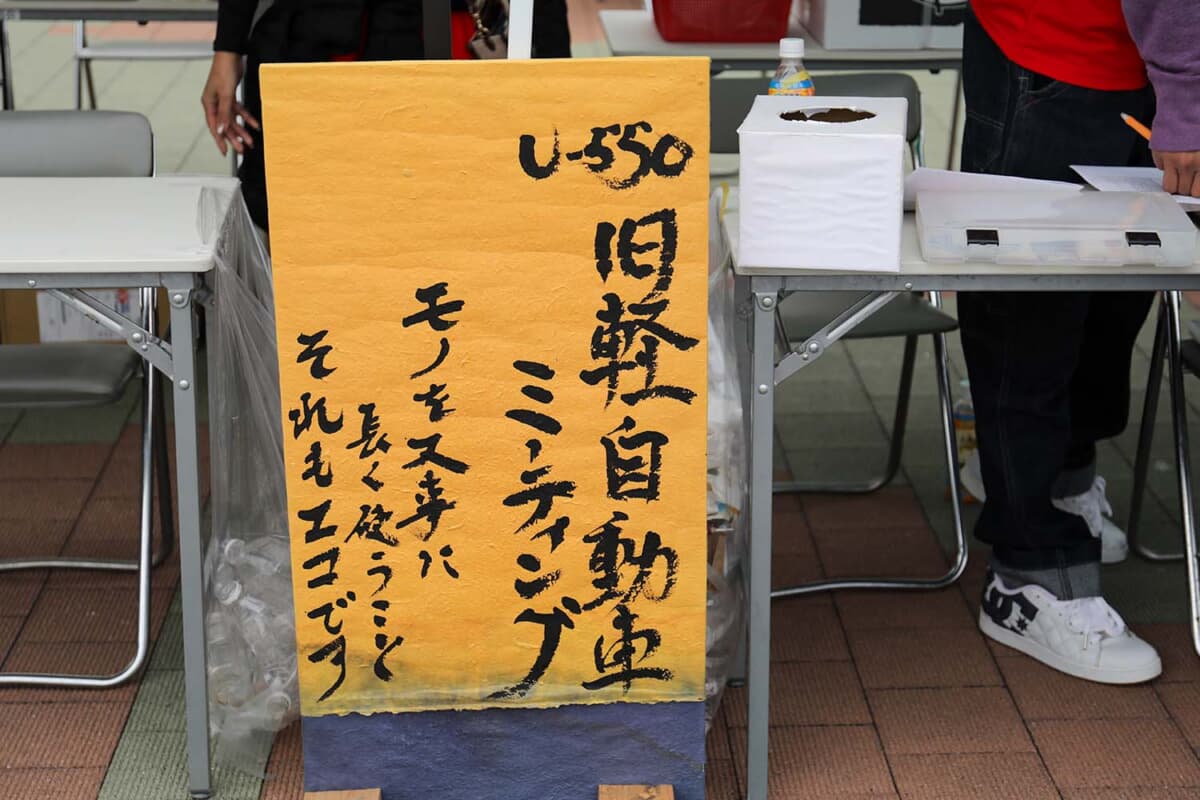 U-550
旧軽自動車
ミーティング
モノを大事に
長く使うこと
それもエコです
DC